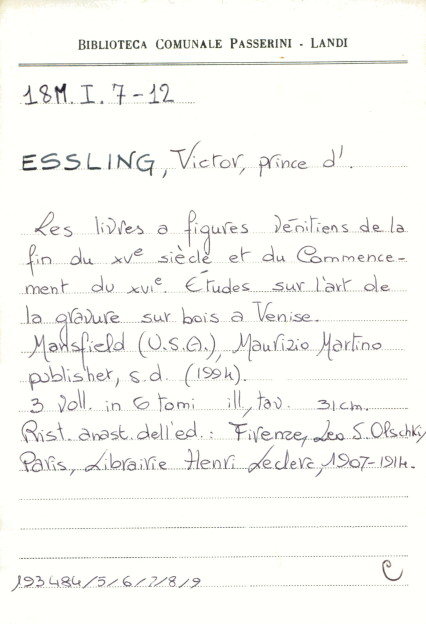 BIBLIOTECA COMUNALE PASSERINI - LANDI
18M. I. 7-12
ESSLING, Victor, prince d'.
Les livres a figures Vénitiens de la
fin du XVe siècle et du Commence-
ment du XVIe. Études sur l'art de
la gravure sur bois a Venise.
Mansfield (U.S.A.), Maurizio Martino
publisher, s.d. (1994).
3 voll. in 6 tomi ill., tav. 31cm.
Rist. anast. dell'ed.: Firenze, Leo S. Olschki,
Paris, Librairie Henri Leclerc, 1907-1914.
193484/5/6/7/8/9
C